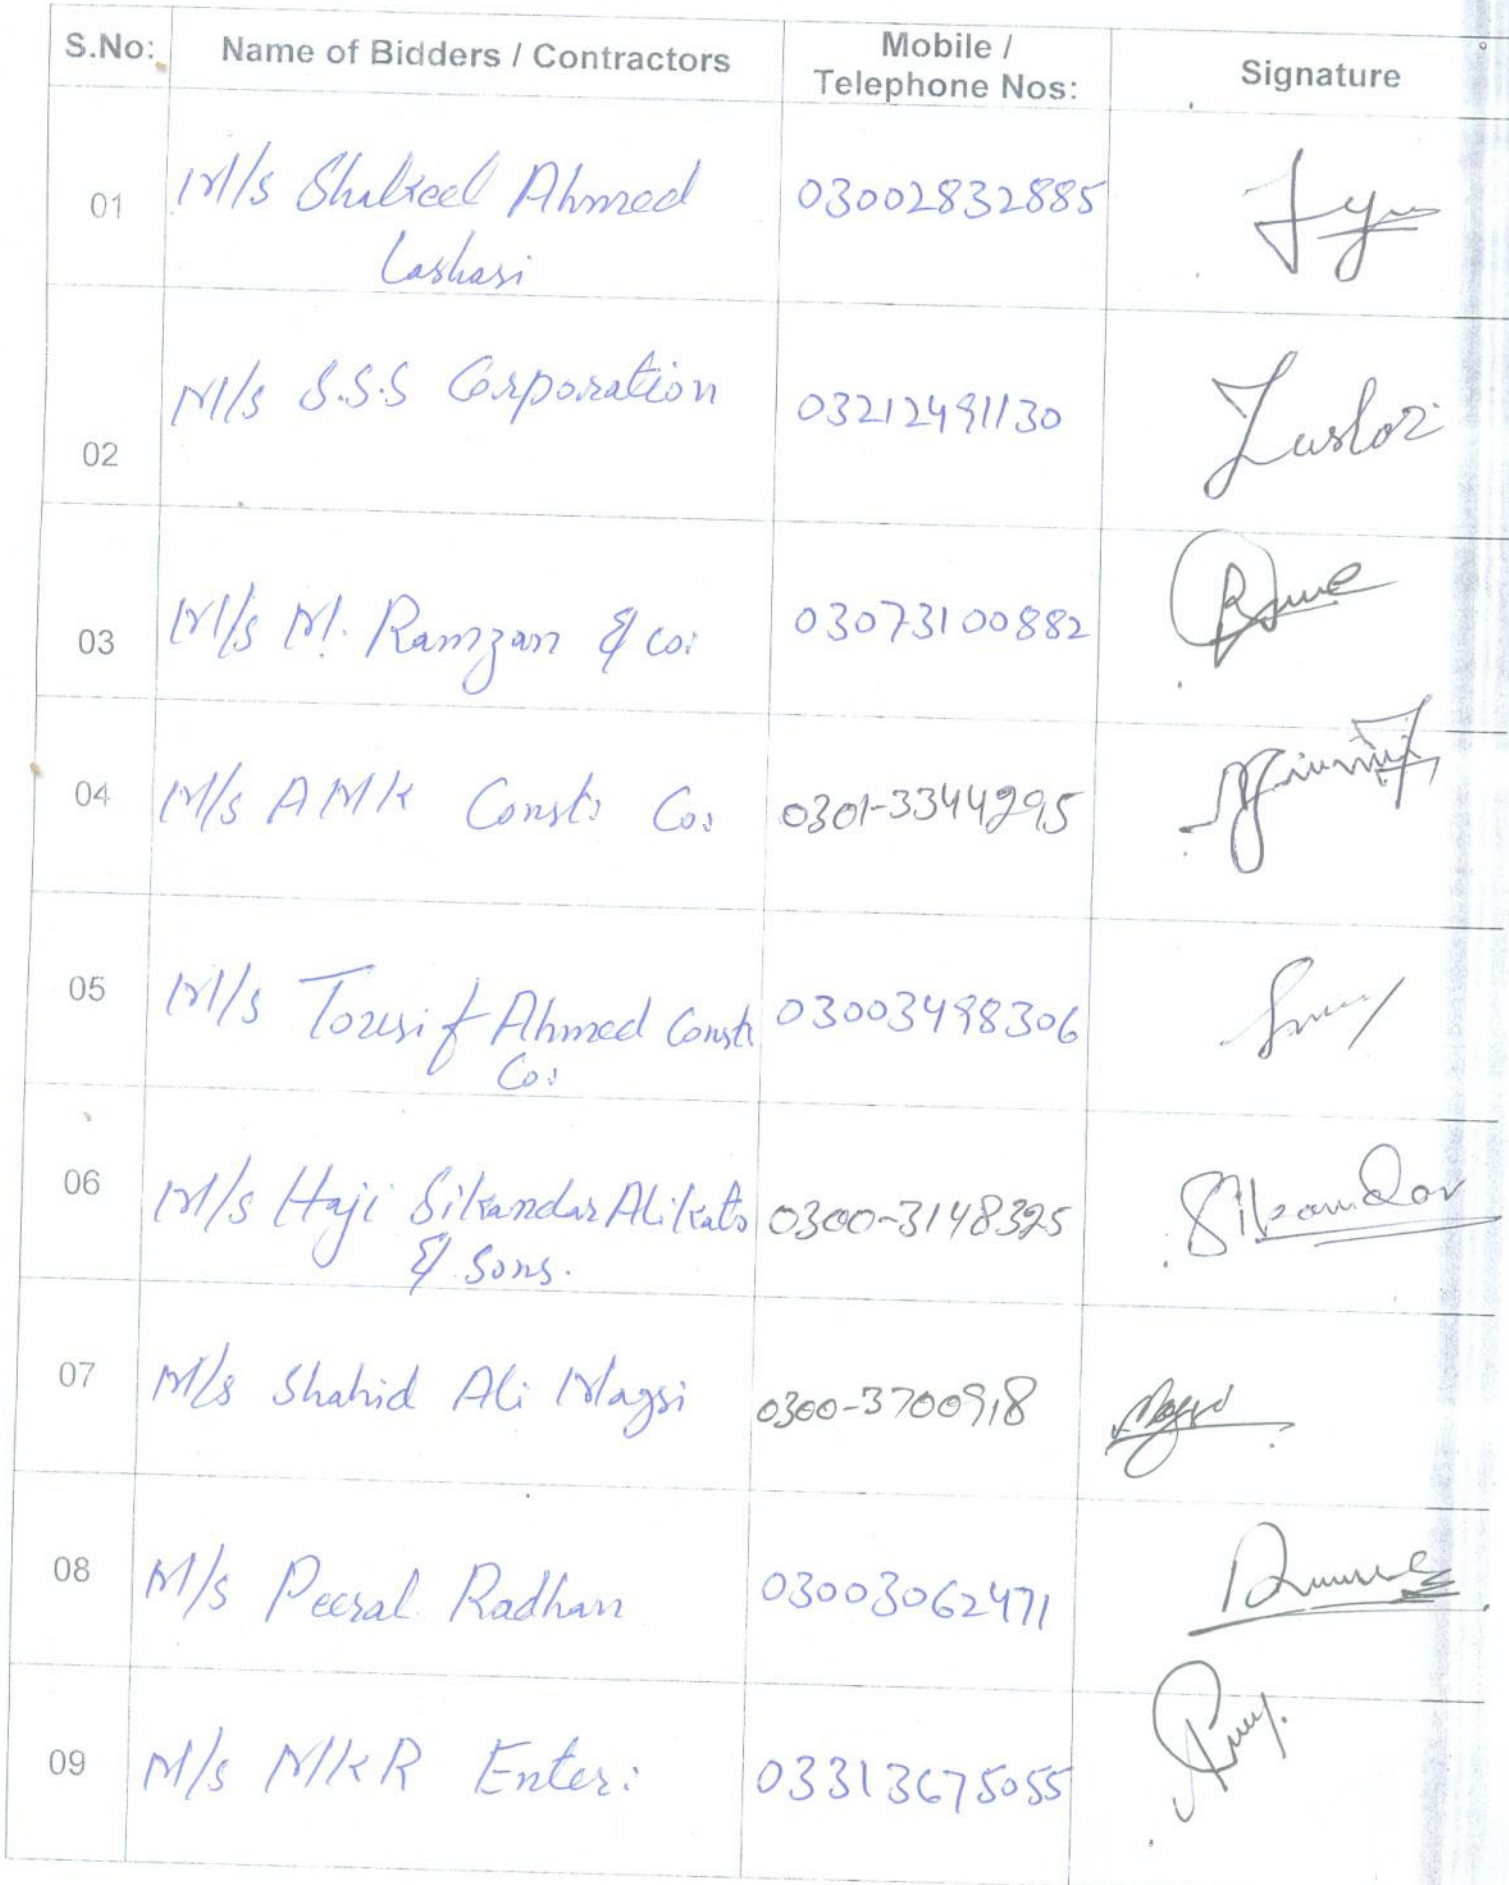 S.No: Name of Bidders / Contractors Mobile / Telephone Nos: Signature
01 M/s Shakeel Ahmed 03002832885
Lashari
02 M/s S.S.S Corporation 03212491130
03 M/s M. Ramzan & Co: 03073100882
04 M/s AMK Const: Co: 0301-3344295
05 M/s Tousif Ahmed Const: 03003498306
Co:
06 M/s Haji Sikandar Ali 0300-3148325 Sikandar
& Sons.
07 M/s Shahid Ali Magsi 0300-3700918 Magsi
08 M/s Peeral Radhan 03003062471
09 M/s MKR Enter: 03313675055